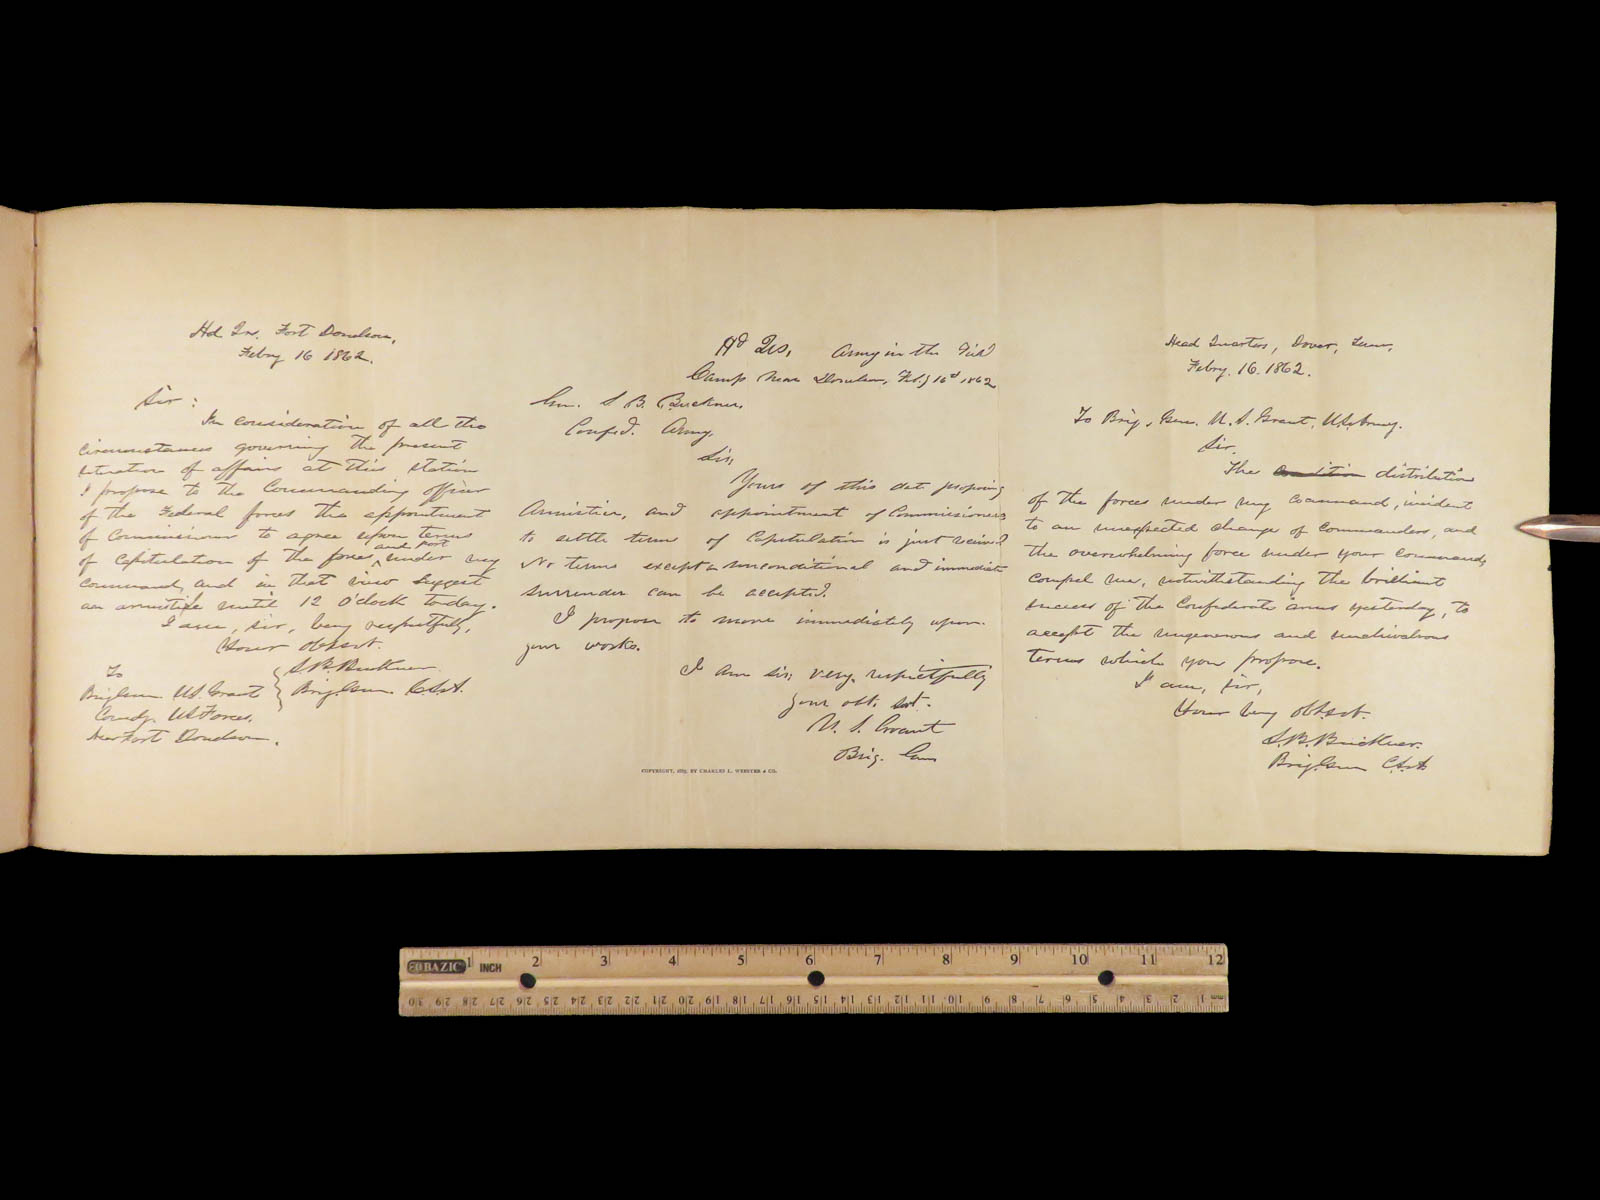 Hd Qrs. Fort Donelson,
Febry 16 1862.
Sir:
In consideration of all the
circumstances governing the present
situation of affairs at this station
I propose to the Commanding officer
of the Federal forces the appointment
of Commissioners to agree upon terms
of capitulation of the forces and fort under my
command, and in that view suggest
an armistice until 12 o'clock to-day.
I am, sir, very respectfully,
Your obt svt.
S. B. Buckner
Brig. Gen. C.S.A.
To
Brig Gen. U.S. Grant
Comdg. US Forces,
Near Fort Donelson.
Hd Qrs, Army in the Field
Camp near Donelson, Feb.y 16th 1862
Gen. S. B. Buckner,
Confed. Army,
Sir;
Yours of this date proposing
Armistice, and appointment of Commissioners
to settle terms of Capitulation is just received.
No terms except an unconditional and immediate
surrender can be accepted.
I propose to move immediately upon
your works.
I am sir; very respectfully
your obt. svt.
U. S. Grant
Brig. Gen
COPYRIGHT, 1885, BY CHARLES L. WEBSTER & CO.
Head Quarters, Dover, Tenn,
Febry. 16. 1862.
To Brig. Gen. U. S. Grant, U.S. Army.
Sir.
The condition distribution
of the forces under my command, incident
to an unexpected change of commanders, and
the overwhelming force under your command,
compel me, notwithstanding the brilliant
success of the Confederate arms yesterday, to
accept the ungenerous and unchivalrous
terms which you propose.
I am, sir,
Your very obt svt.
S. B. Buckner.
Brig. Gen C.S.A.
BAZIC 1 INCH 2 3 4 5 6 7 8 9 10 11 12
30 29 28 27 26 25 24 23 22 21 20 19 18 17 16 15 14 13 12 11 10 9 8 7 6 5 4 3 2 1 mm